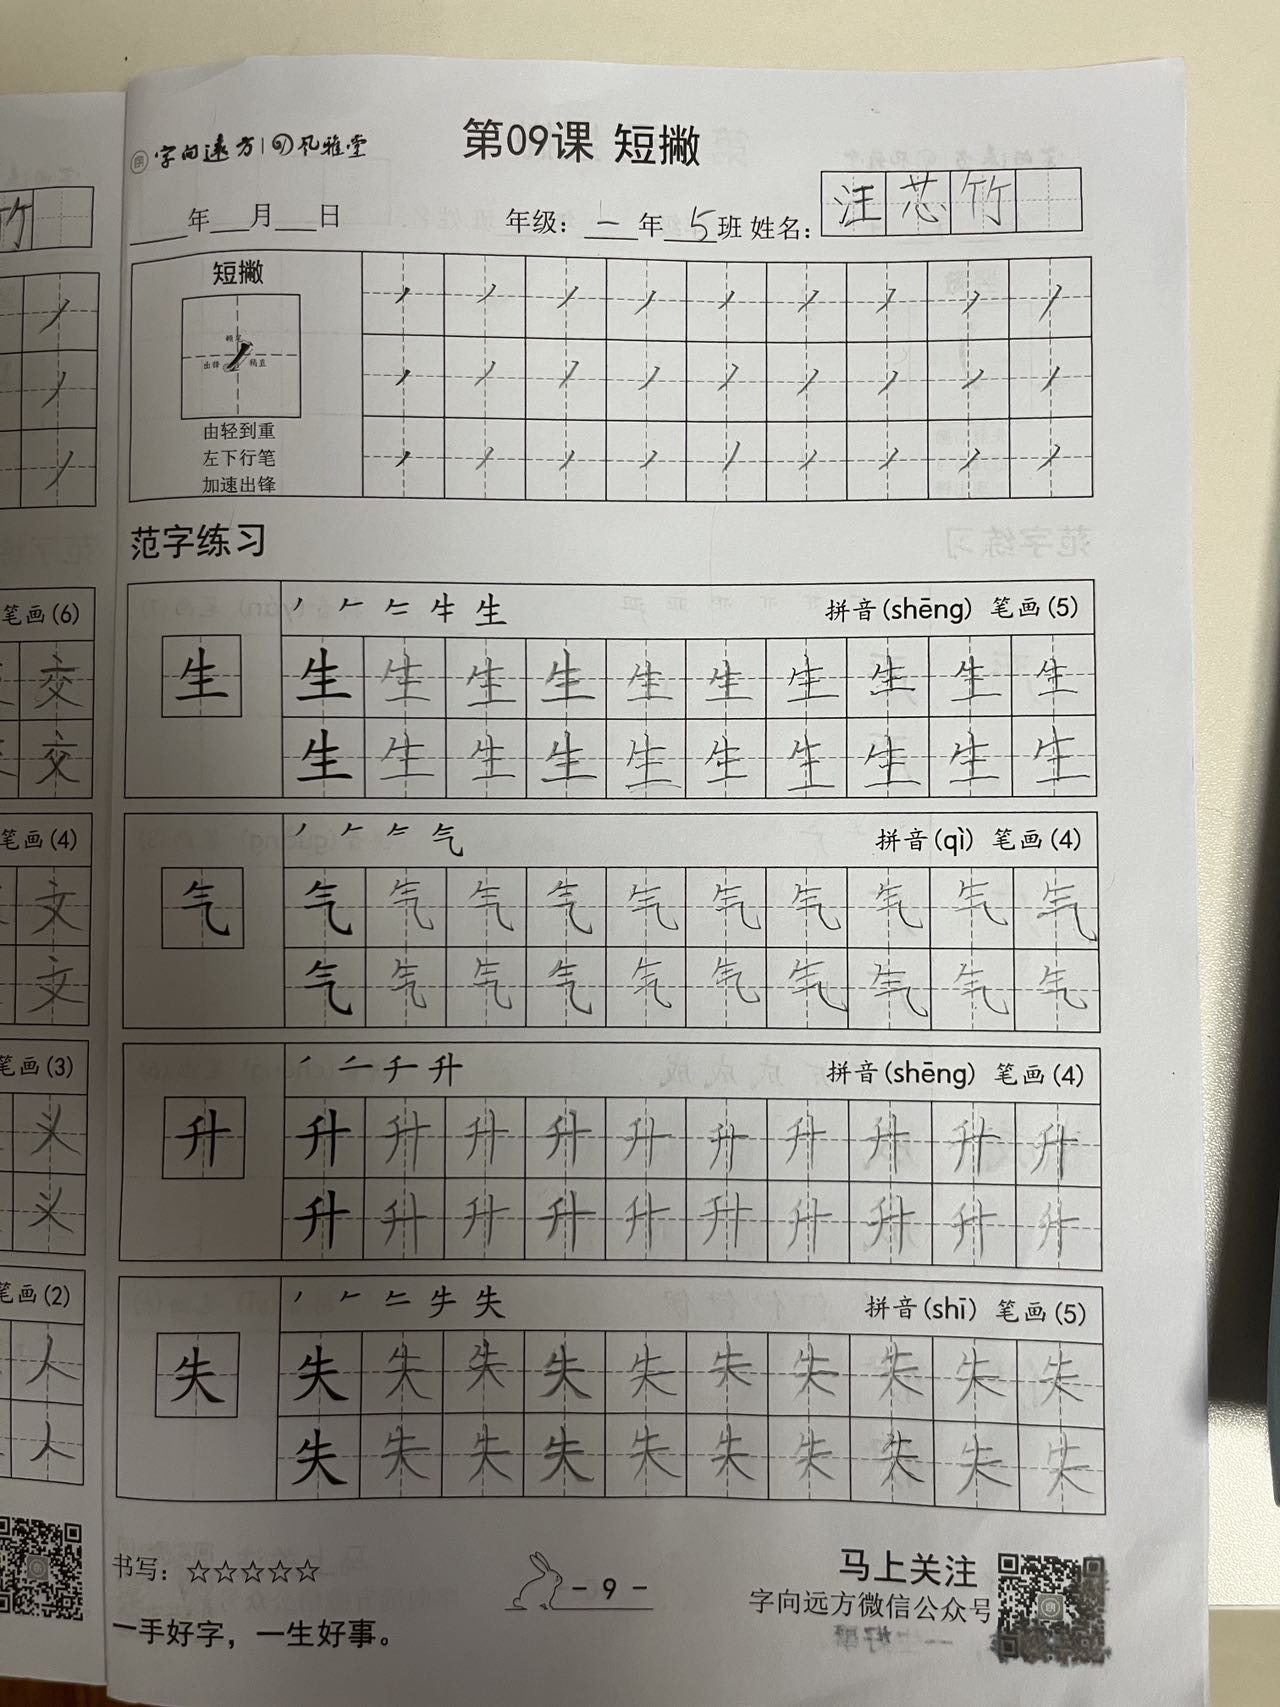 字向遠方 风雅堂
第09课 短撇
年 月 日 年级：一年5班 姓名：汪芯竹
短撇
由轻到重
左下行笔
加速出锋
范字练习
生 拼音(shēng) 笔画(5)
生 生 生 生 生 生 生 生 生 生 生
生 生 生 生 生 生 生 生 生 生
气 拼音(qì) 笔画(4)
气 气 气 气 气 气 气 气 气 气 气
气 气 气 气 气 气 气 气 气 气
升 拼音(shēng) 笔画(4)
升 升 升 升 升 升 升 升 升 升 升
升 升 升 升 升 升 升 升 升 升
失 拼音(shī) 笔画(5)
失 失 失 失 失 失 失 失 失 失 失
失 失 失 失 失 失 失 失 失 失
书写：☆☆☆☆☆
一手好字，一生好事。
- 9 -
马上关注
字向远方微信公众号
竹
笔画(6)
交
交
笔画(4)
文
文
笔画(3)
义
义
笔画(2)
人
人